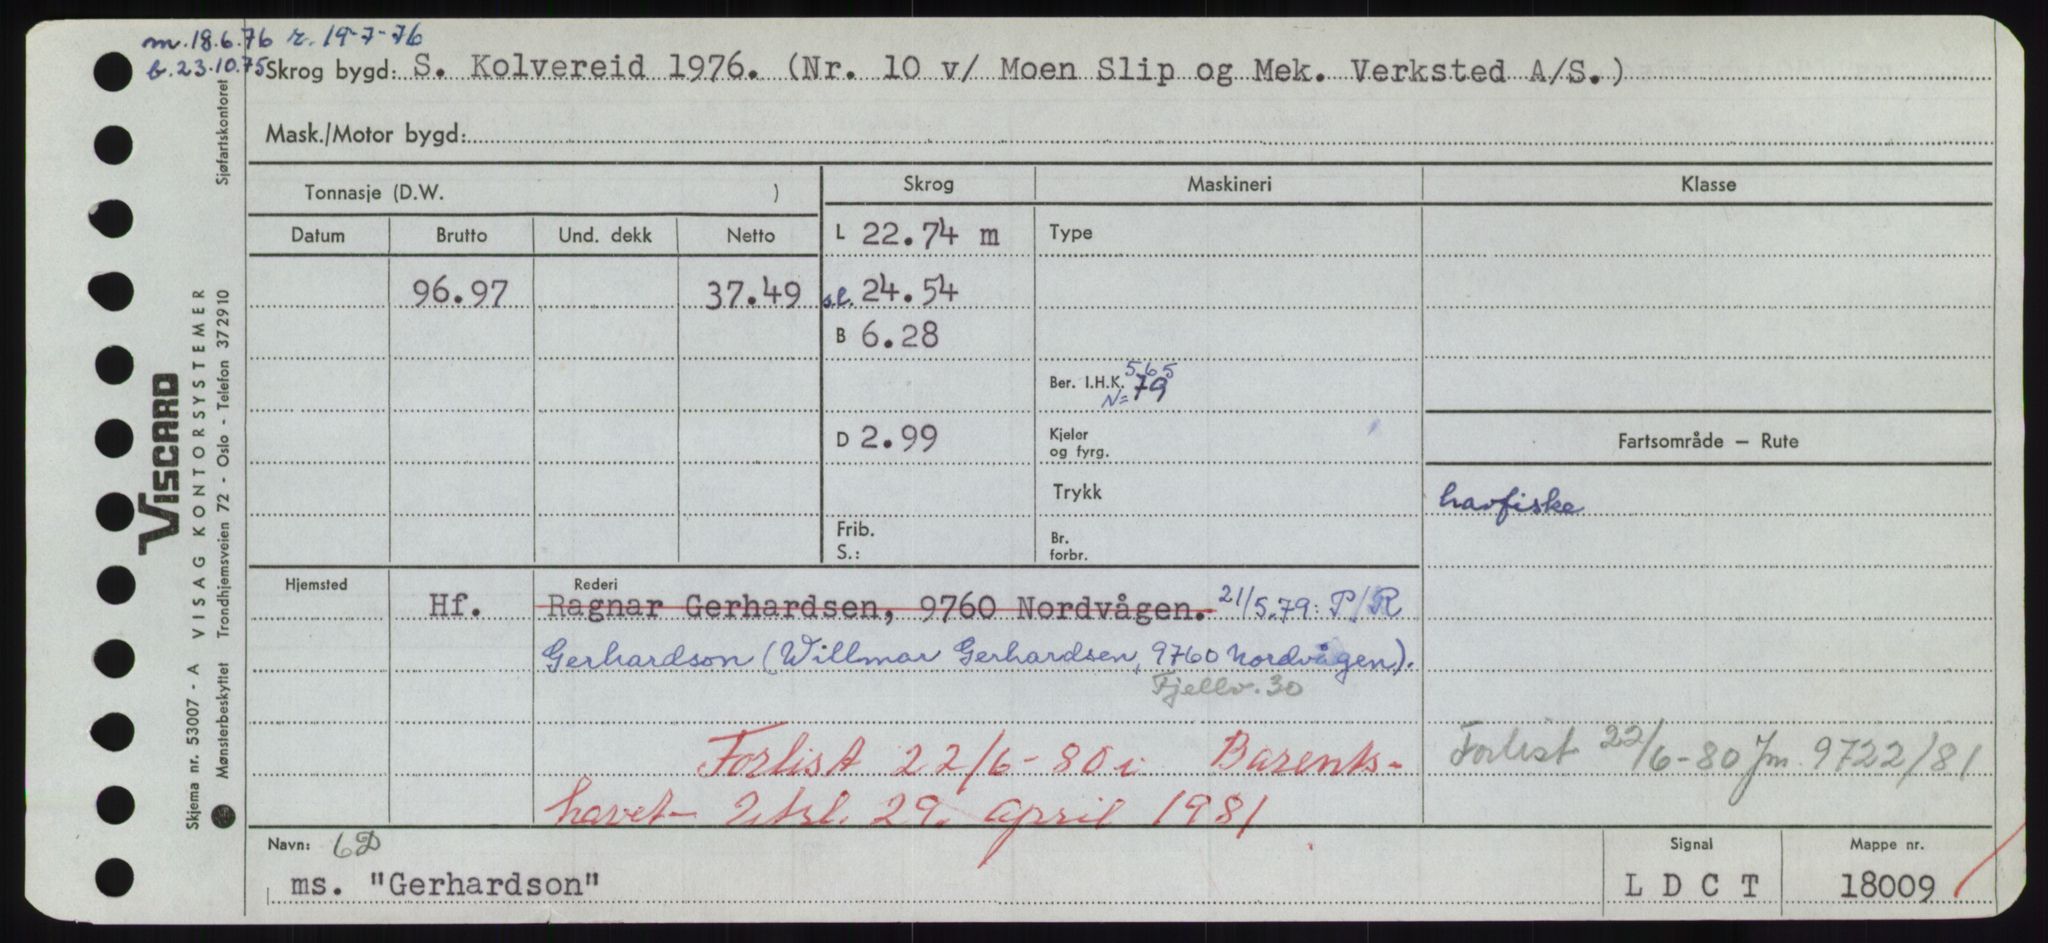 m. 18.6.76 r. 19-7-76
b. 23.10.75 Skrog bygd: S. Kolvereid 1976. (Nr. 10 v/ Moen Slip og Mek. Verksted A/S.)
Mask./Motor bygd:
Tonnasje (D.W. ) Skrog Maskineri Klasse
Datum Brutto Und. dekk Netto L 22.74 m Type
96.97 37.49 s.l. 24.54
B 6.28
Ber. I.H.K. 565
N= 79
D 2.99 Kjeler og fyrg. Fartsområde – Rute
Trykk havfiske
Frib. S.: Br. forbr.
Hjemsted Rederi
Hf. Ragnar Gerhardsen, 9760 Nordvågen. 21/5.79: P/R
Gerhardson (Willmar Gerhardsen, 9760 Nordvågen).
Fjellv. 30
Forlist 22/6-80 i Barents-
havet – Utsl. 29. april 1981
Forlist 22/6-80 Jm. 9722/81
Navn: 6D Signal Mappe nr.
ms. "Gerhardson" L D C T 18009
Skjema nr. 53007 - A VISAG KONTORSYSTEMER
Mønsterbeskyttet Trondhjemsveien 72 - Oslo - Telefon 372910 Sjøfartskontoret
VISCARD